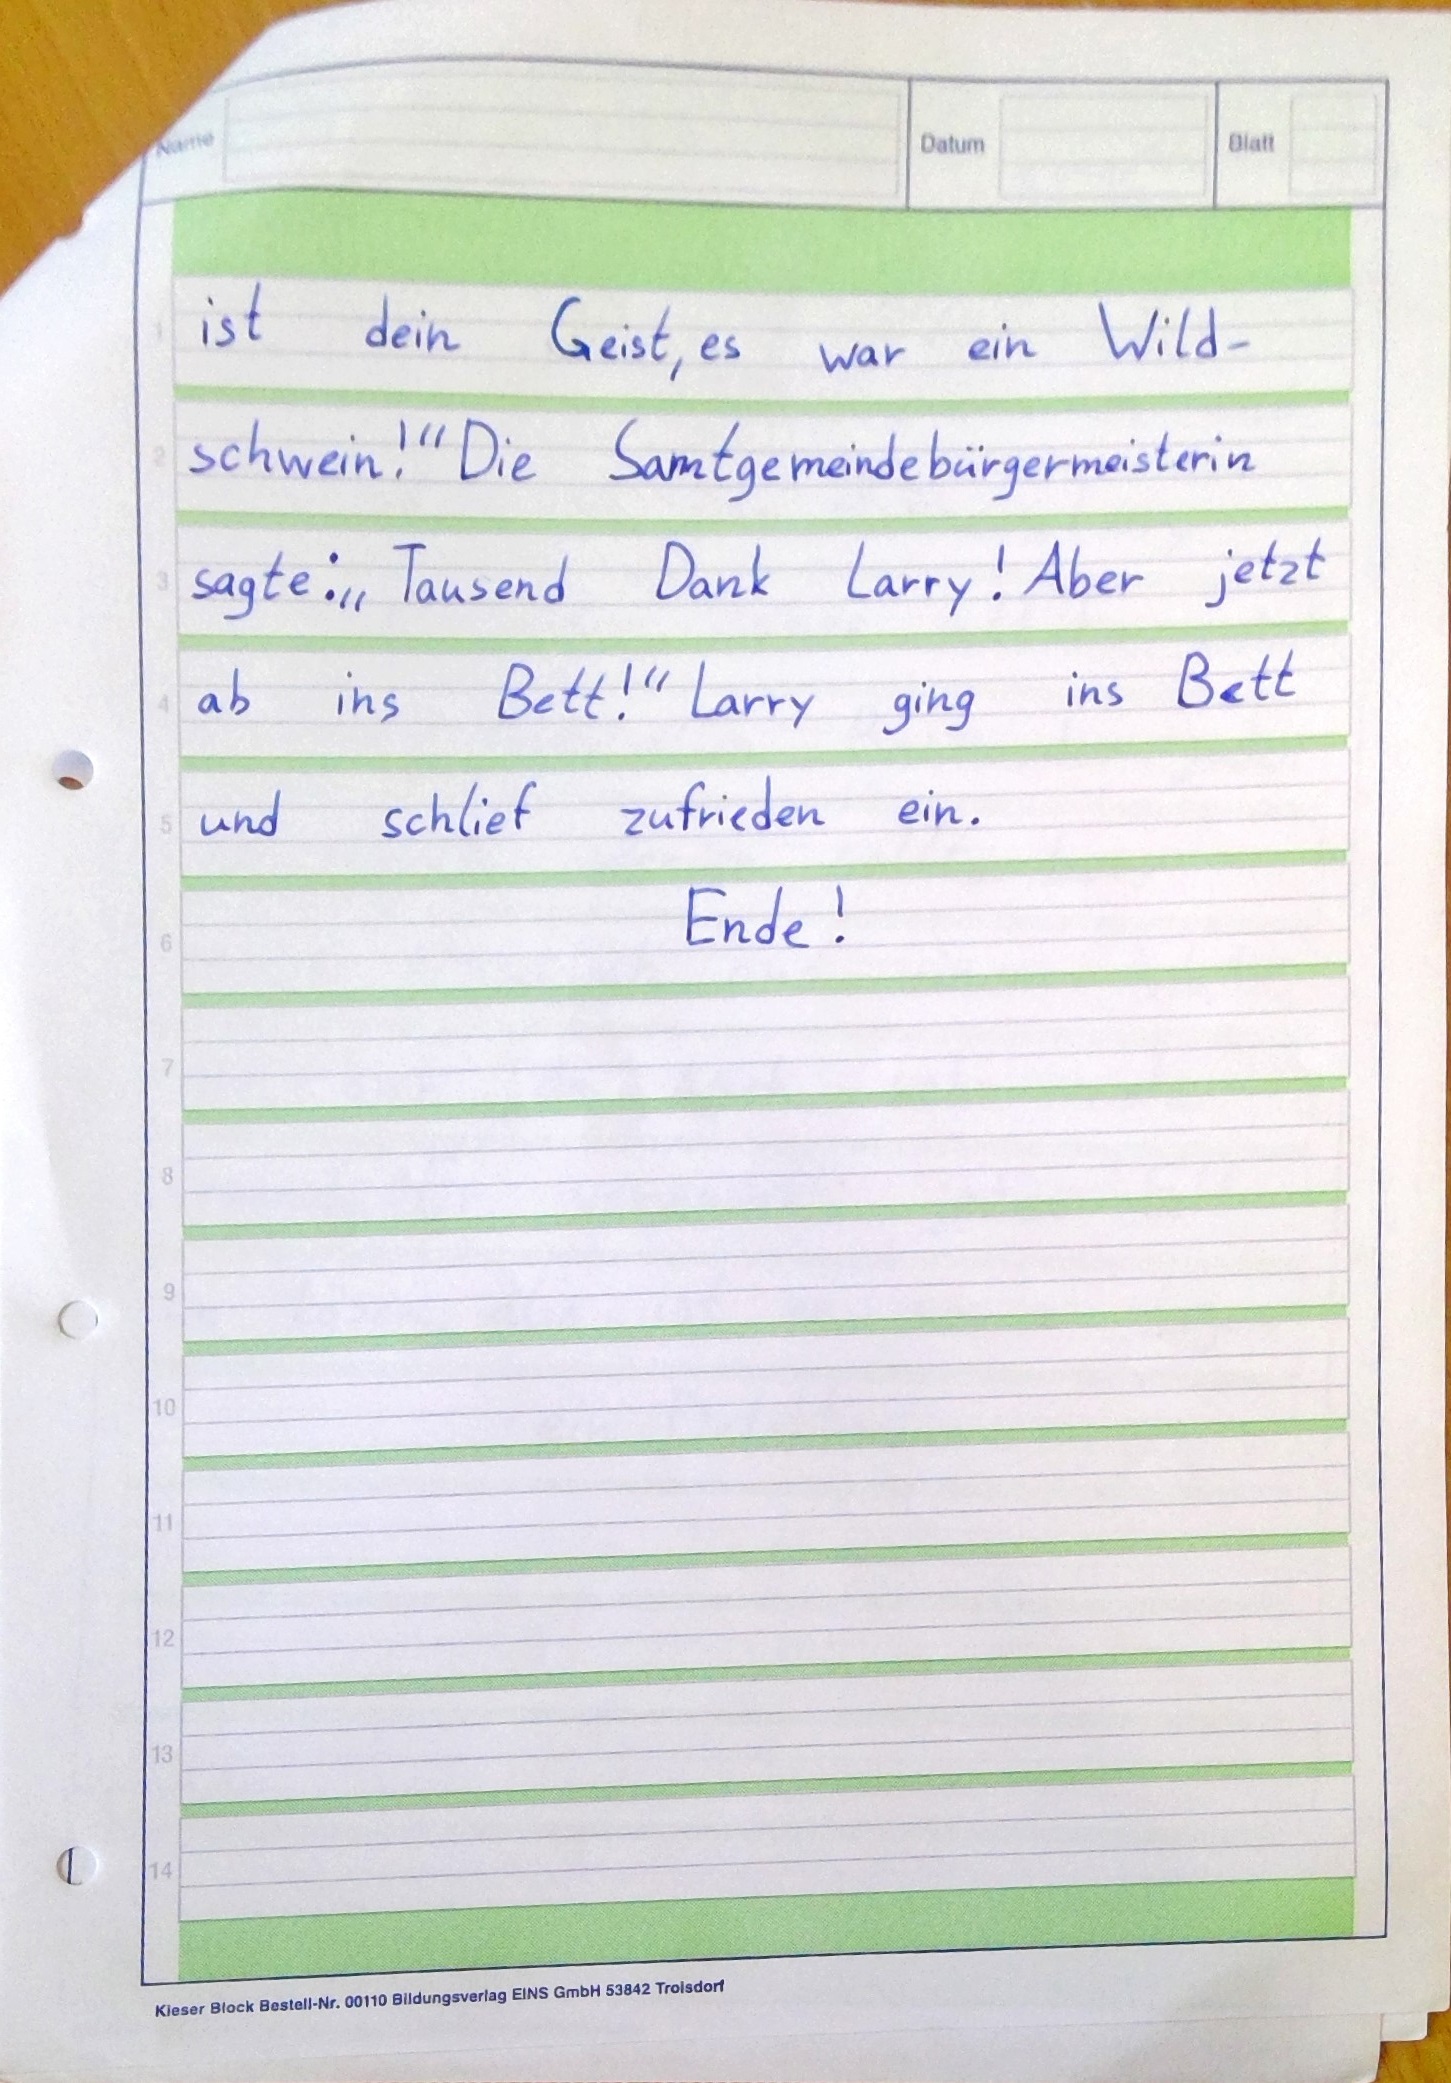 Name Datum Blatt
1 ist dein Geist, es war ein Wild-
2 schwein!“ Die Samtgemeindebürgermeisterin
3 sagte: „Tausend Dank Larry! Aber jetzt
4 ab ins Bett!“ Larry ging ins Bett
5 und schlief zufrieden ein.
6 Ende!
7
8
9
10
11
12
13
14
Kieser Block Bestell-Nr. 00110 Bildungsverlag EINS GmbH 53842 Troisdorf